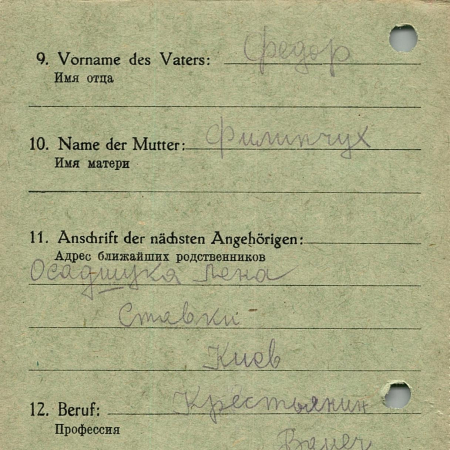 9. Vorname des Vaters: Федор
Имя отца
10. Name der Mutter: Филипчух
Имя матери
11. Anschrift der nächsten Angehörigen:
Адрес ближайших родственников
Осадшука Лена
Ставки
Киев
12. Beruf: Крестьянин
Профессия
Bauer